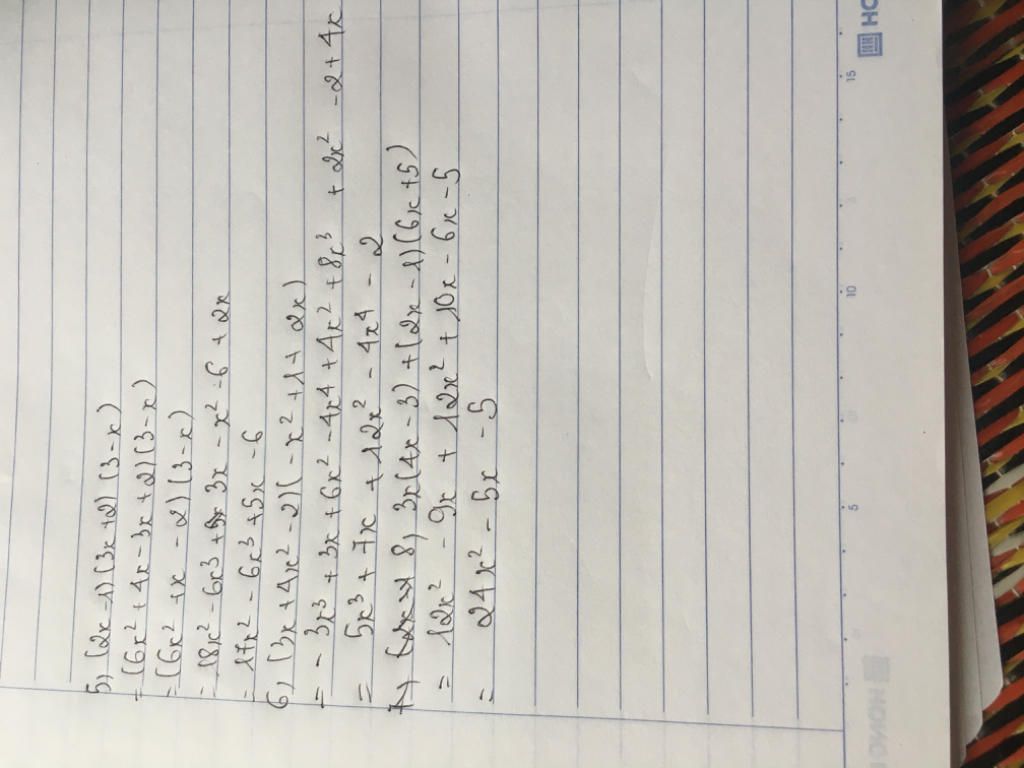 5) (2x-1)(3x+2)(3-x)
= (6x² + 4x - 3x + 2)(3-x)
= (6x² + x - 2)(3-x)
= 18x² - 6x³ + 3x - x² - 6 + 2x
= 17x² - 6x³ + 5x - 6
6) (3x + 4x² - 2)(-x² + 1 + 2x)
= -3x³ + 3x + 6x² - 4x⁴ + 4x² + 8x³ + 2x² - 2 + 4x
= 5x³ + 7x + 12x² - 4x⁴ - 2
8) 3x(4x-3) + (2x-1)(6x+5)
= 12x² - 9x + 12x² + 10x - 6x - 5
= 24x² - 5x - 5
5
10
15
HO
HONG